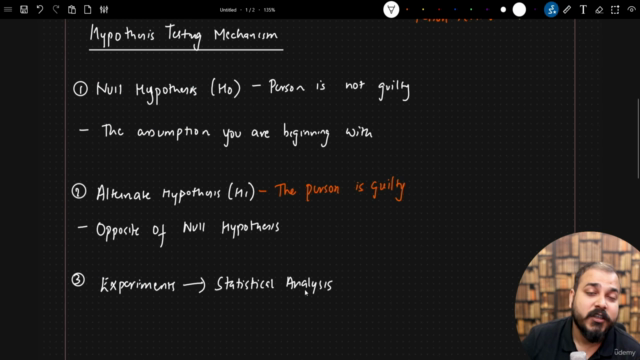 Untitled - 1 / 2 - 135%
Hypothesis Testing Mechanism
① Null Hypothesis (H0) - Person is not guilty
- The assumption you are beginning with
② Alternate Hypothesis (H1) - The person is guilty
- Opposite of Null Hypothesis
③ Experiments → Statistical Analysis
udemy